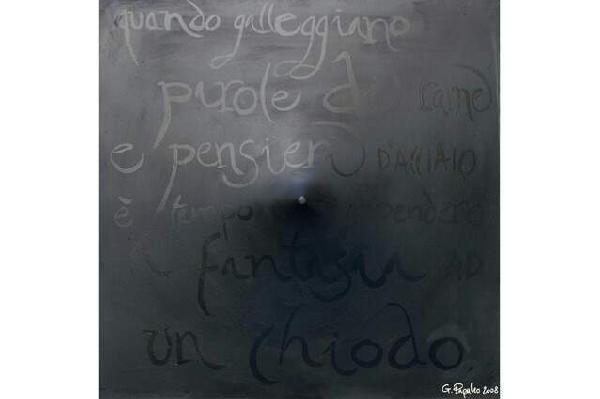 quando galleggiano
parole di rame
e pensieri D'ACCIAIO
è tempo appendere
fantasia AD
un chiodo.
G. 2008